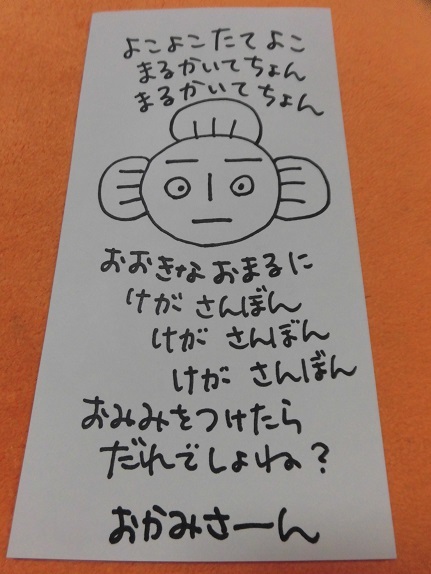 よこよこたてよこ
まるかいてちょん
まるかいてちょん
おおきな おまるに
けが さんぼん
けが さんぼん
けが さんぼん
おみみをつけたら
だれでしょね?
おかみさーん